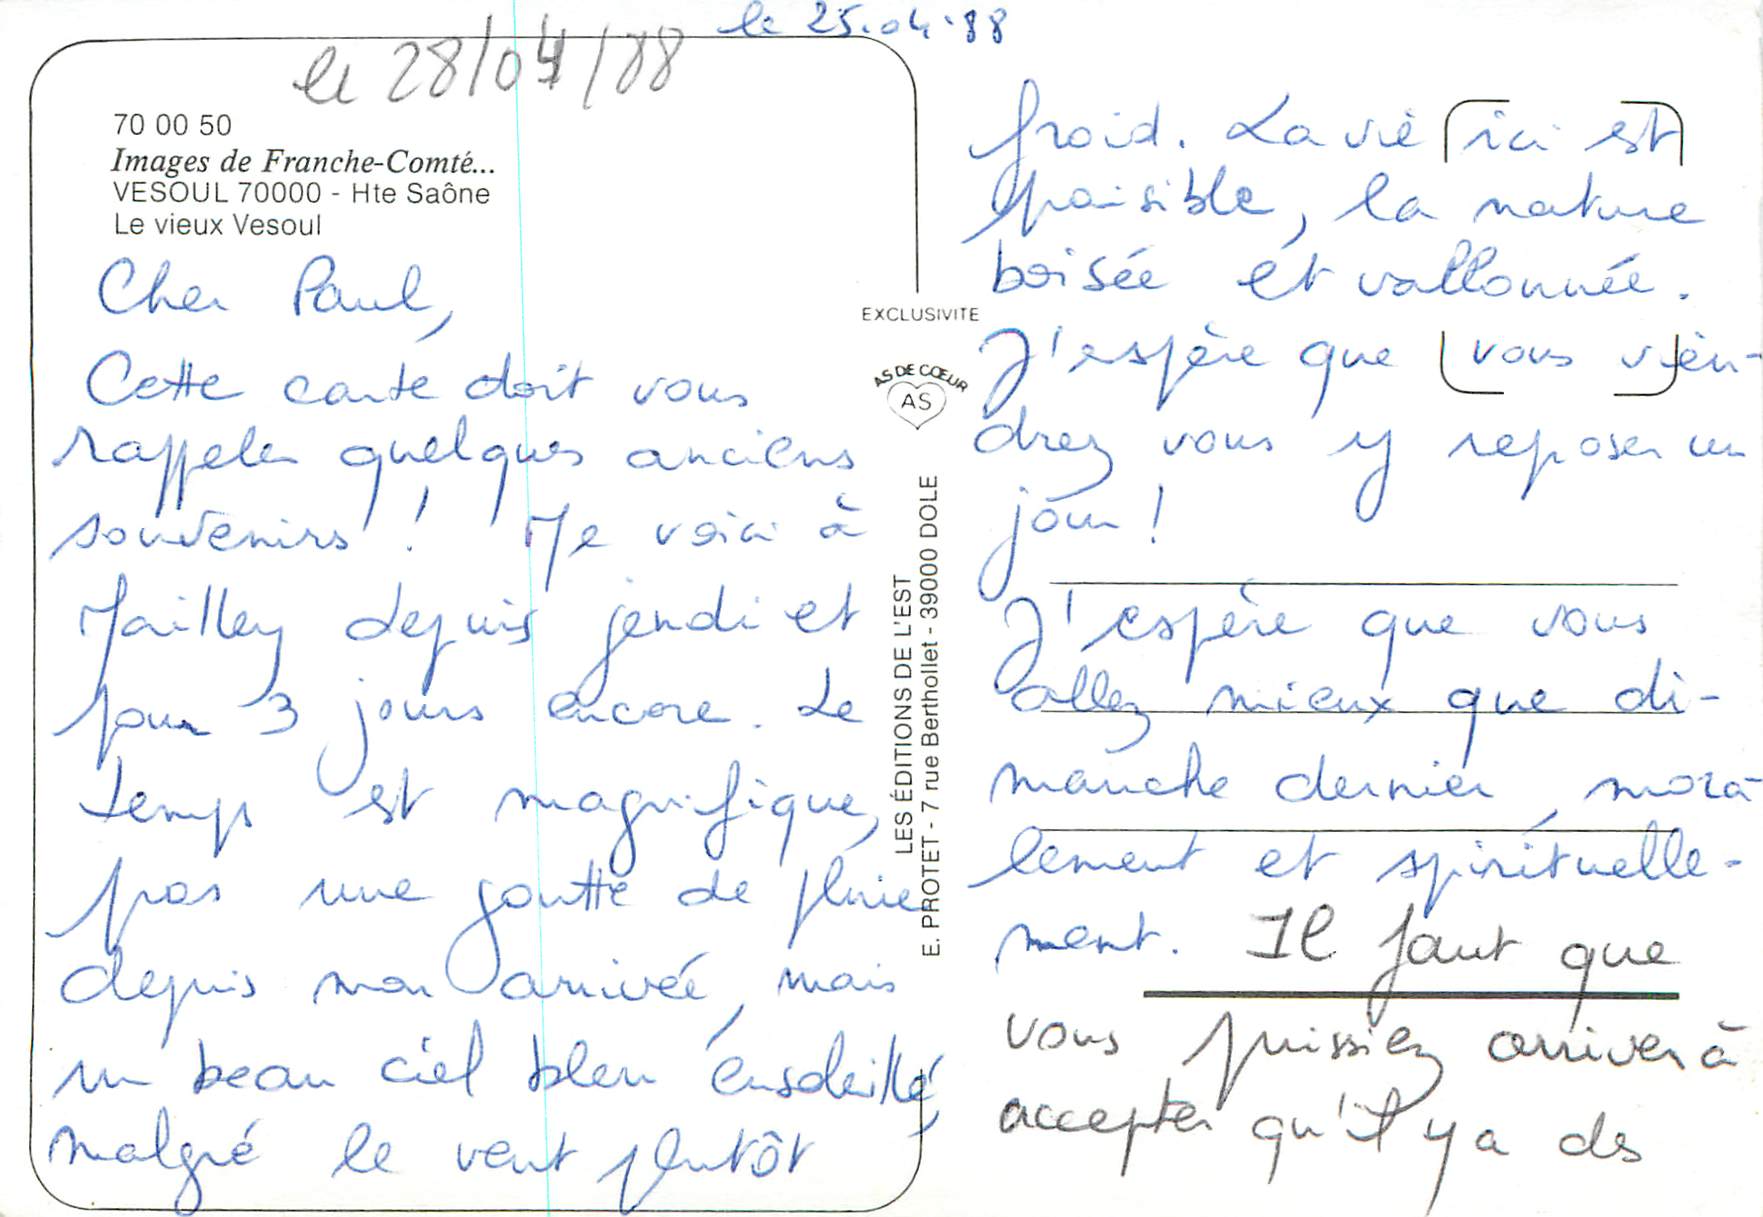 le 25.04.88
le 28/04/88
70 00 50
Images de Franche-Comté...
VESOUL 70000 - Hte Saône
Le vieux Vesoul
Cher Paul,
Cette carte doit vous
rappeler quelques anciens
souvenirs ! Me voici à
Mailley depuis jeudi et
pour 3 jours encore. Le
temps est magnifique,
pas une goutte de pluie
depuis mon arrivée, mais
un beau ciel bleu ensoleillé,
malgré le vent plutôt
EXCLUSIVITE
AS DE CŒUR
AS
LES ÉDITIONS DE L'EST
E. PROTET - 7 rue Berthollet - 39000 DOLE
froid. La vie ici est
paisible, la nature
boisée et vallonnée.
J'espère que vous vien-
drez vous y reposer un
jour !
J'espère que vous
allez mieux que di-
manche dernier, mora-
lement et spirituelle-
ment. Il faut que
vous puissiez arriver à
accepter qu'il y a des